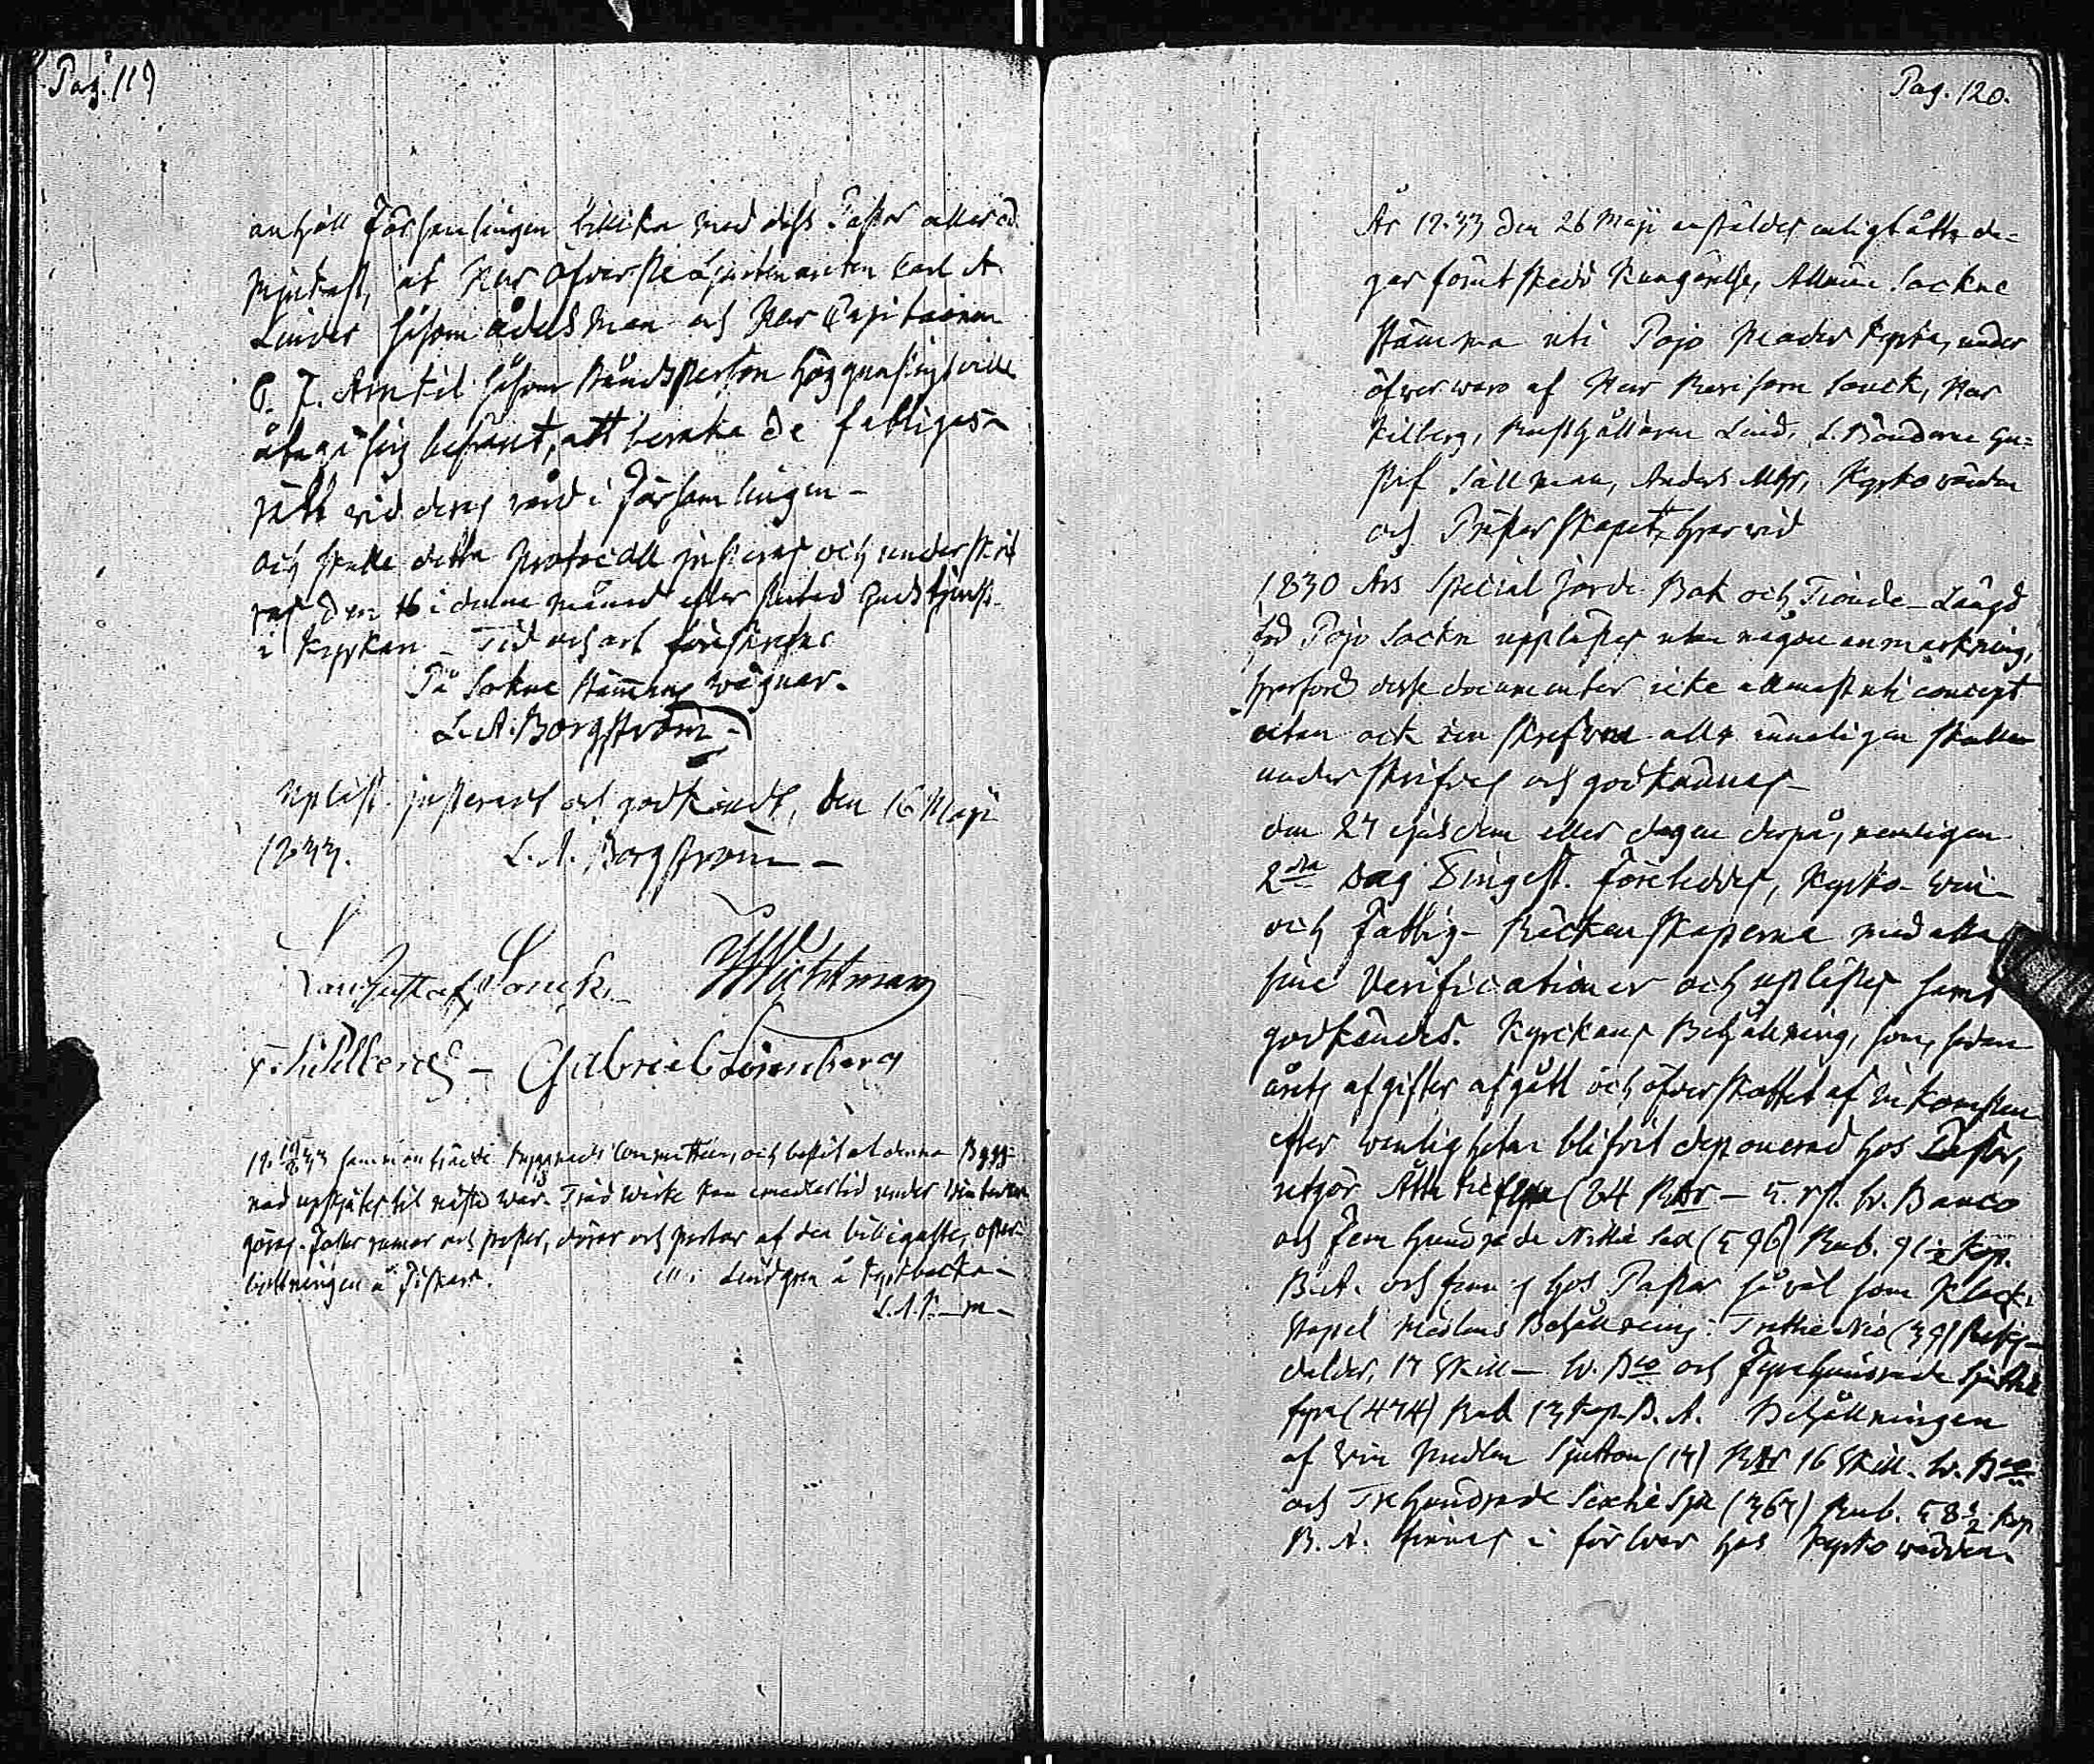 Pag. 119
anhöll Församlingen tillika med dess Pastor alleröd
mjukast, at Herr Öfverste Lieutenanten Carl A.
Linder såsom adelsman och Herr Capitainen
C. J. Arntil såsom ståndsperson höggunstigt ville
åtaga sig besväret, att bevaka de fattigas
rätt vid deras vård i Församlingen –
och skulle detta Protocoll justeras och underskrif
vas den 16 i denna månad efter slutad Gudstjenst
i Kyrkan – Tid och ort förutskrefne
På Sockne Stämmans vägnar.
L. A. Borgström
Upläst, justerat och godkändt, den 16 Maji
1833. L. A. Borgström –
Gustaf Sanck. Wichtman
Gabriel Lönnberg
1833 sammanträdde Byggnads Committéen, och beslöt at denna Bygg-
nad upskjutes til nästa vår. Träd virke kan emedlertid under Winteren
göras.
Lindgren å Kyrkbacka –
L. A. B–m–
Pag. 120.
År 1833 den 26 Maji anställdes enligt åtta da-
gar förut skedd Kungörelse, Allmän Sockne
Stämma uti Pojo Moder Kyrka, under
öfwerwaro af Herr Sanck, Herr
Kilberg, Rusthållaren Lind, L. Bönderne Gu-
staf Sällman, Anders Mattss, Kyrkowärden
och Presterskapet, hvarvid
1830 Års Special Jorde Bok och Tionde-Längd
för Pojo Sockn upplästes utan någon anmärkning,
hvarföre desse documenter icke allenast uti concept
utan ock ren skrefvne alltså skulle
underskrifvas och godkännas –
den 27 ejusdem eller dagen derpå, nemligen
2dra Dag Pingest. Företeddes, Kyrko- Win-
och Fattig- Räckenskaperne med alla
sine Verificationer och uplästes samt
godkändes. Kyrckans Behållning, som, sedan
årets afgifter afgått och öfverskottet af inkomsten
efter vanligheten blifvit deponerad hos Pastor,
utgör Åttatiefyra (84 Rdr – 5. rst. Sv. Banco
och Fem hundrade Nittio sex (596) Rub. 91 ½ kop.
B. A. och finnes hos Pastor så väl som Klock-
stapel Medlens Behållning: Trettie Nio (39) Riks-
daler, 17 Skill – Sv. Bco och Fyrahundrade Sjuttio
fyra (474) Rub 13 kop. B. A. Behållningen
af Win Medlen Sjutton (17) Rdr 16 Skill. Sv. Bco
och Trehundrade Sextie Sju (367) Rub. 58 ½ kop
B. A. finnes i förvar hos Kyrkowärden.